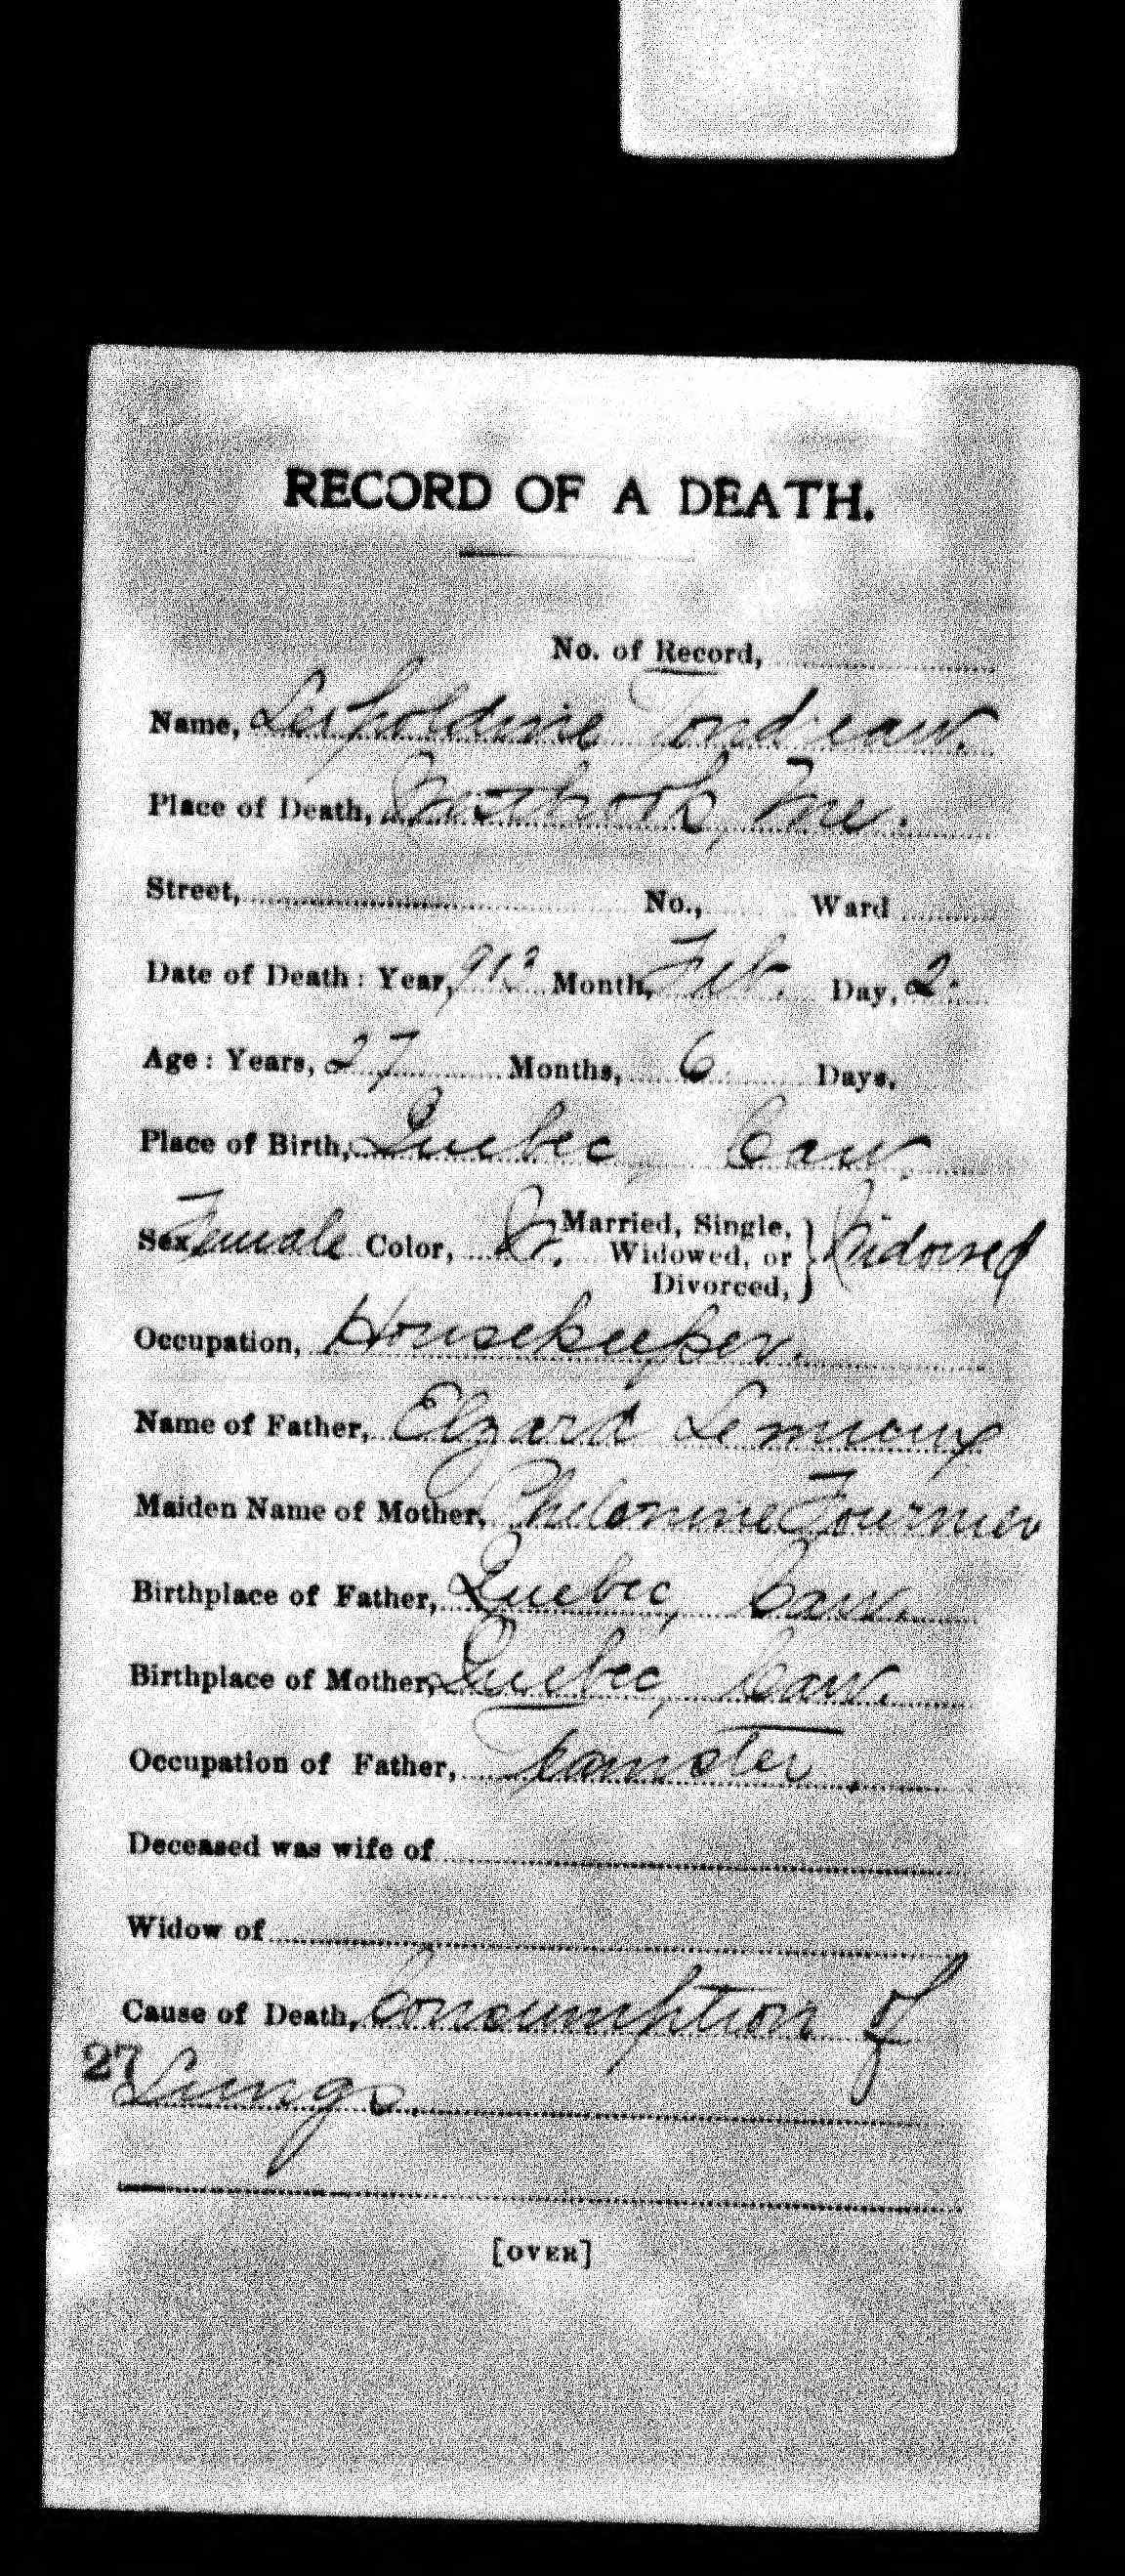 RECORD OF A DEATH.
No. of Record,
Name, Leopoldine Tondreau.
Place of Death, Westbrook, Me.
Street, No., Ward
Date of Death: Year, 913 Month, Feb. Day, 2.
Age: Years, 27 Months, 6 Days,
Place of Birth, Quebec, Can.
Sex, Female Color, W. Married, Single, Widowed, or Divorced, } Widowed
Occupation, Housekeeper.
Name of Father, Elzard Lemieux
Maiden Name of Mother, Philomine Fournier
Birthplace of Father, Quebec, Can.
Birthplace of Mother, Quebec, Can.
Occupation of Father, Teamster.
Deceased was wife of
Widow of
Cause of Death, Consumption of
27 Lungs.
[OVER]